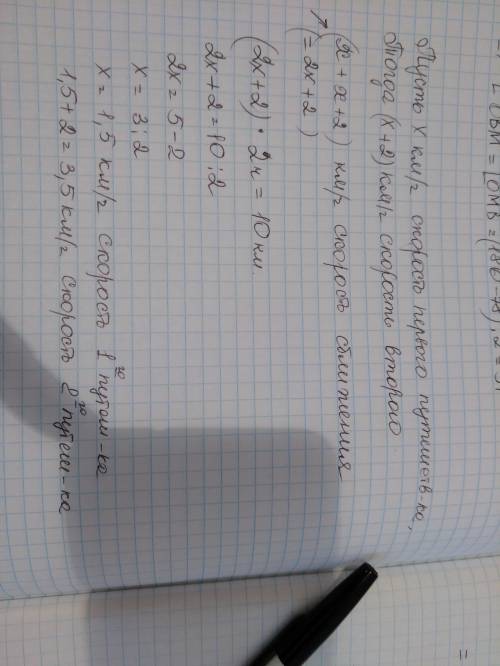 ∠ OBM = ∠OMB = (180 - 78) : 2 = 51
Пусть x км/г скорость первого путешеств-ка,
Тогда (x+2) км/г скорость второго
(x + x + 2) км/г скорость сближения
(= 2x + 2)
(2x+2) · 2ч = 10 км.
2x + 2 = 10 : 2
2x = 5 - 2
x = 3 : 2
x = 1,5 км/г скорость 1го путеш-ка
1,5 + 2 = 3,5 км/г скорость 2го путеш-ка
=